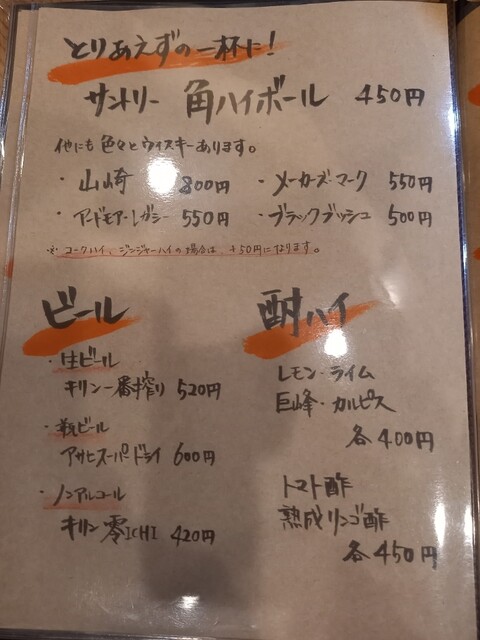 とりあえずの一杯に!
サントリー 角ハイボール 450円
他にも色々とウィスキーあります。
・山崎 800円 ・メーカーズ・マーク 550円
・アードモア・レガシー 550円 ・ブラックブッシュ 500円
※コークハイ、ジンジャーハイの場合は、+50円になります。
ビール
・生ビール
キリン一番搾り 520円
・瓶ビール
アサヒスーパードライ 600円
・ノンアルコール
キリン 零ICHI 420円
酎ハイ
レモン・ライム
巨峰・カルピス
各400円
トマト酢
熟成リンゴ酢
各450円